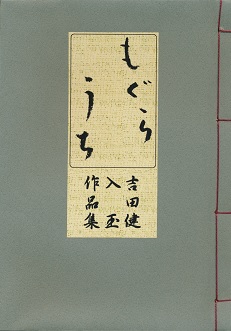 もぐら
うち
吉田健
入玉
作品集